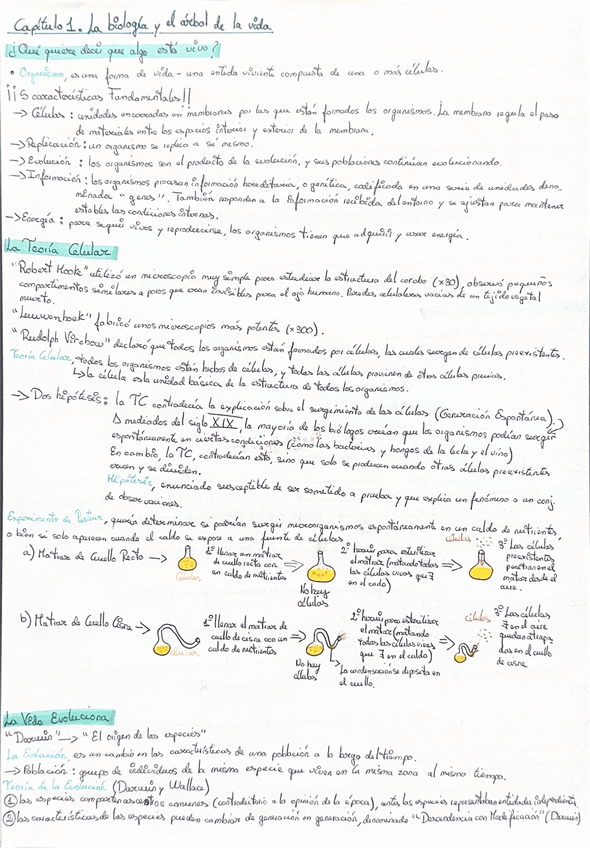 Capítulo 1. La biología y el árbol de la vida
¿Qué quiere decir que algo está vivo?
• Organismo, es una forma de vida - una entidad viviente compuesta de una o más células.
¡¡5 características Fundamentales!!
→ Células: unidades encerradas en membranas por las que están formados los organismos. La membrana regula el paso
de materiales entre los espacios interior y exterior de la membrana.
→ Replicación: un organismo se replica a sí mismo.
→ Evolución: los organismos son el producto de la evolución, y sus poblaciones continúan evolucionando.
→ Información: los organismos procesan información hereditaria, o genética, codificada en una serie de unidades deno-
minada "genes". También responden a la información recibida del entorno y se ajustan para mantener
estables las condiciones internas.
→ Energía: para seguir vivos y reproducirse, los organismos tienen que adquirir y usar energía.
La Teoría Celular
"Robert Hooke" utilizó un microscopio muy simple para estudiar la estructura del corcho (x30), observó pequeños
compartimentos similares a poros que eran invisibles para el ojo humano. Paredes celulares vacías de un tejido vegetal
muerto.
"Leeuwenhoek" fabricó unos microscopios más potentes (x300).
"Rudolph Virchow" declaró que todos los organismos están formados por células, las cuales surgen de células preexistentes.
Teoría Celular, todos los organismos están hechos de células, y todas las células provienen de otras células previas.
↳ la célula es la unidad básica de la estructura de todos los organismos.
→ Dos hipótesis: la TC contradecía la explicación sobre el surgimiento de las células (Generación Espontánea).
A mediados del siglo XIX, la mayoría de los biólogos creían que los organismos podían surgir
espontáneamente en ciertas condiciones (como las bacterias y hongos de la leche y el vino)
En cambio, la TC, contradecían esto, sino que solo se producen cuando otras células preexistentes
crecen y se dividen.
Hipótesis, enunciado susceptible de ser sometido a pruebas y que explica un fenómeno o un conj.
de observaciones.
Experimento de Pasteur, quería determinar si podrían surgir microorganismos espontáneamente en un caldo de nutrientes
o bien si solo aparecen cuando el caldo se expone a una fuente de células.
a) Matraz de Cuello Recto →
Células
1º llenar un matraz
de cuello recto con
un caldo de nutrientes
No hay
células
2º hervir para esterilizar
el matraz (matando todas
las células vivas que ∃
en el caldo)
Células
3º Las células
preexistentes
penetran en el
matraz desde el
aire.
b) Matraz de Cuello Cisne →
Células
1º llenar el matraz de
cuello de cisne con un
caldo de nutrientes
No hay
células
2º hervir para esterilizar
el matraz (matando
todas las células vivas
que ∃ en el caldo)
La condensación se deposita en
el cuello.
células
3º Las células
∃ en el aire
quedan atrapa-
das en el cuello
de cisne.
La Vida Evoluciona
"Darwin" → "El origen de las especies"
La Evolución, es un cambio en las características de una población a lo largo del tiempo.
→ Población: grupo de individuos de la misma especie que viven en la misma zona al mismo tiempo.
Teoría de la Evolución (Darwin y Wallace)
① las especies comparten ancestros comunes (contradictorio a la opinión de la época), antes las especies representaban entidades independientes.
② las características de las especies pueden cambiar de generación en generación, denominado "Descendencia con Modificación" (Darwin)